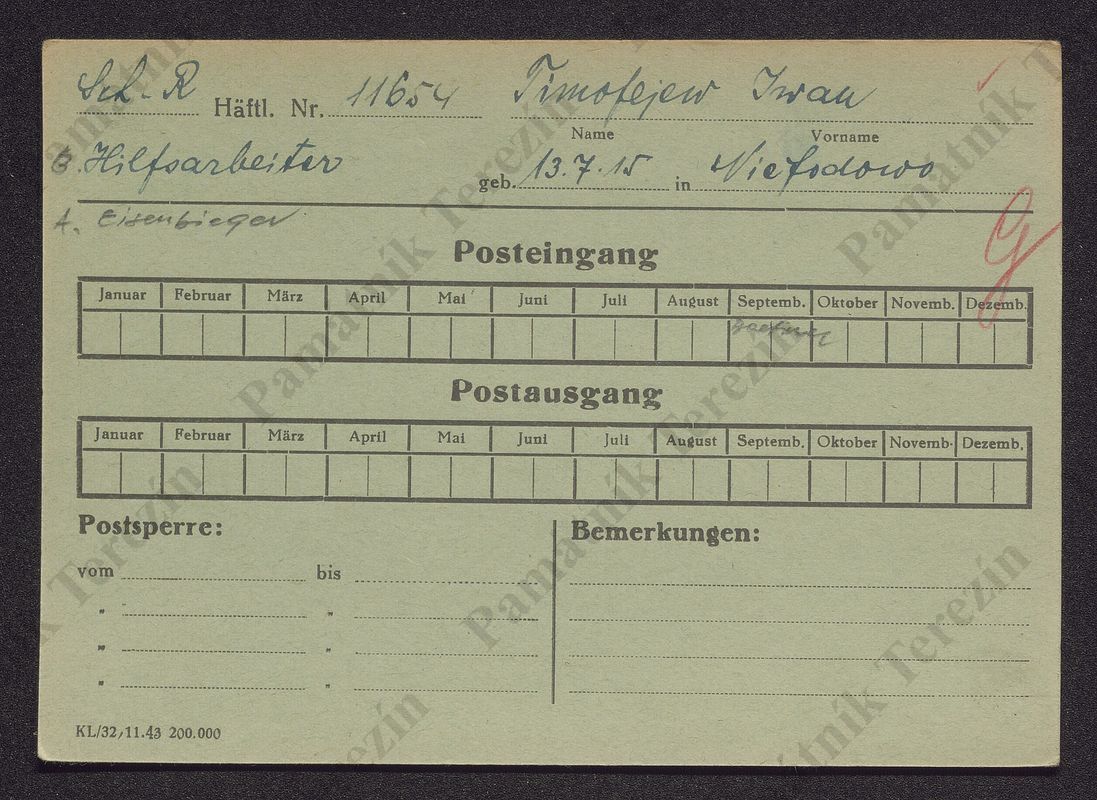 Sch. R Häftl. Nr. 11654 Timofejew Iwan
Name Vorname
B. Hilfsarbeiter geb. 13.7.15 in Niefodowo
A. Eisenbieger
G
Posteingang
Januar Februar März April Mai Juni Juli August Septemb. Oktober Novemb. Dezemb.
Postausgang
Januar Februar März April Mai Juni Juli August Septemb. Oktober Novemb. Dezemb.
Postsperre: Bemerkungen:
vom bis
" "
" "
" "
KL/32, 11.43 200.000
Památník Terezín